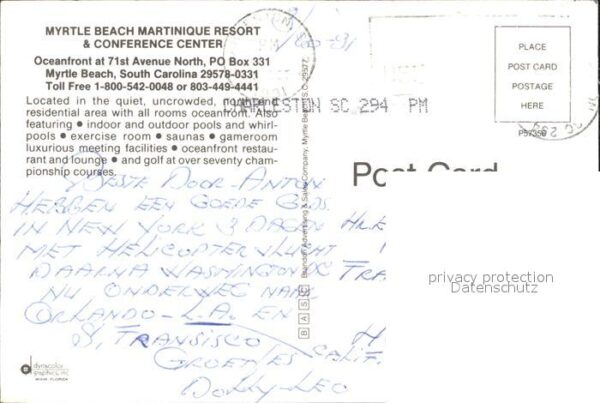 MYRTLE BEACH MARTINIQUE RESORT
& CONFERENCE CENTER
Oceanfront at 71st Avenue North, PO Box 331
Myrtle Beach, South Carolina 29578-0331
Toll Free 1-800-542-0048 or 803-449-4441
Located in the quiet, uncrowded, northend
residential area with all rooms oceanfront. Also
featuring • indoor and outdoor pools and whirl-
pools • exercise room • saunas • gameroom
luxurious meeting facilities • oceanfront restau-
rant and lounge • and golf at over seventy cham-
pionship courses.
CHARLESTON SC 294 PM
PLACE
POST CARD
POSTAGE
HERE
P57356
Post Card
BESTE DOOR-ANTON
HEBBEN EEN GOEDE GIDS
IN NEW YORK 3 DAGEN
MET HELICOPTERVLUCHT
DAARNA WASHINGTON DC
NU ONDERWEG NAAR
ORLANDO-L.A. EN
S. FRANSISCO
GROETJES CALIF.
DOLLY-LEO
privacy protection
Datenschutz
BASC Brandon Advertising & Sales Company, Myrtle Beach, S.C. 29577
dynacolor
graphics, inc
MIAMI FLORIDA